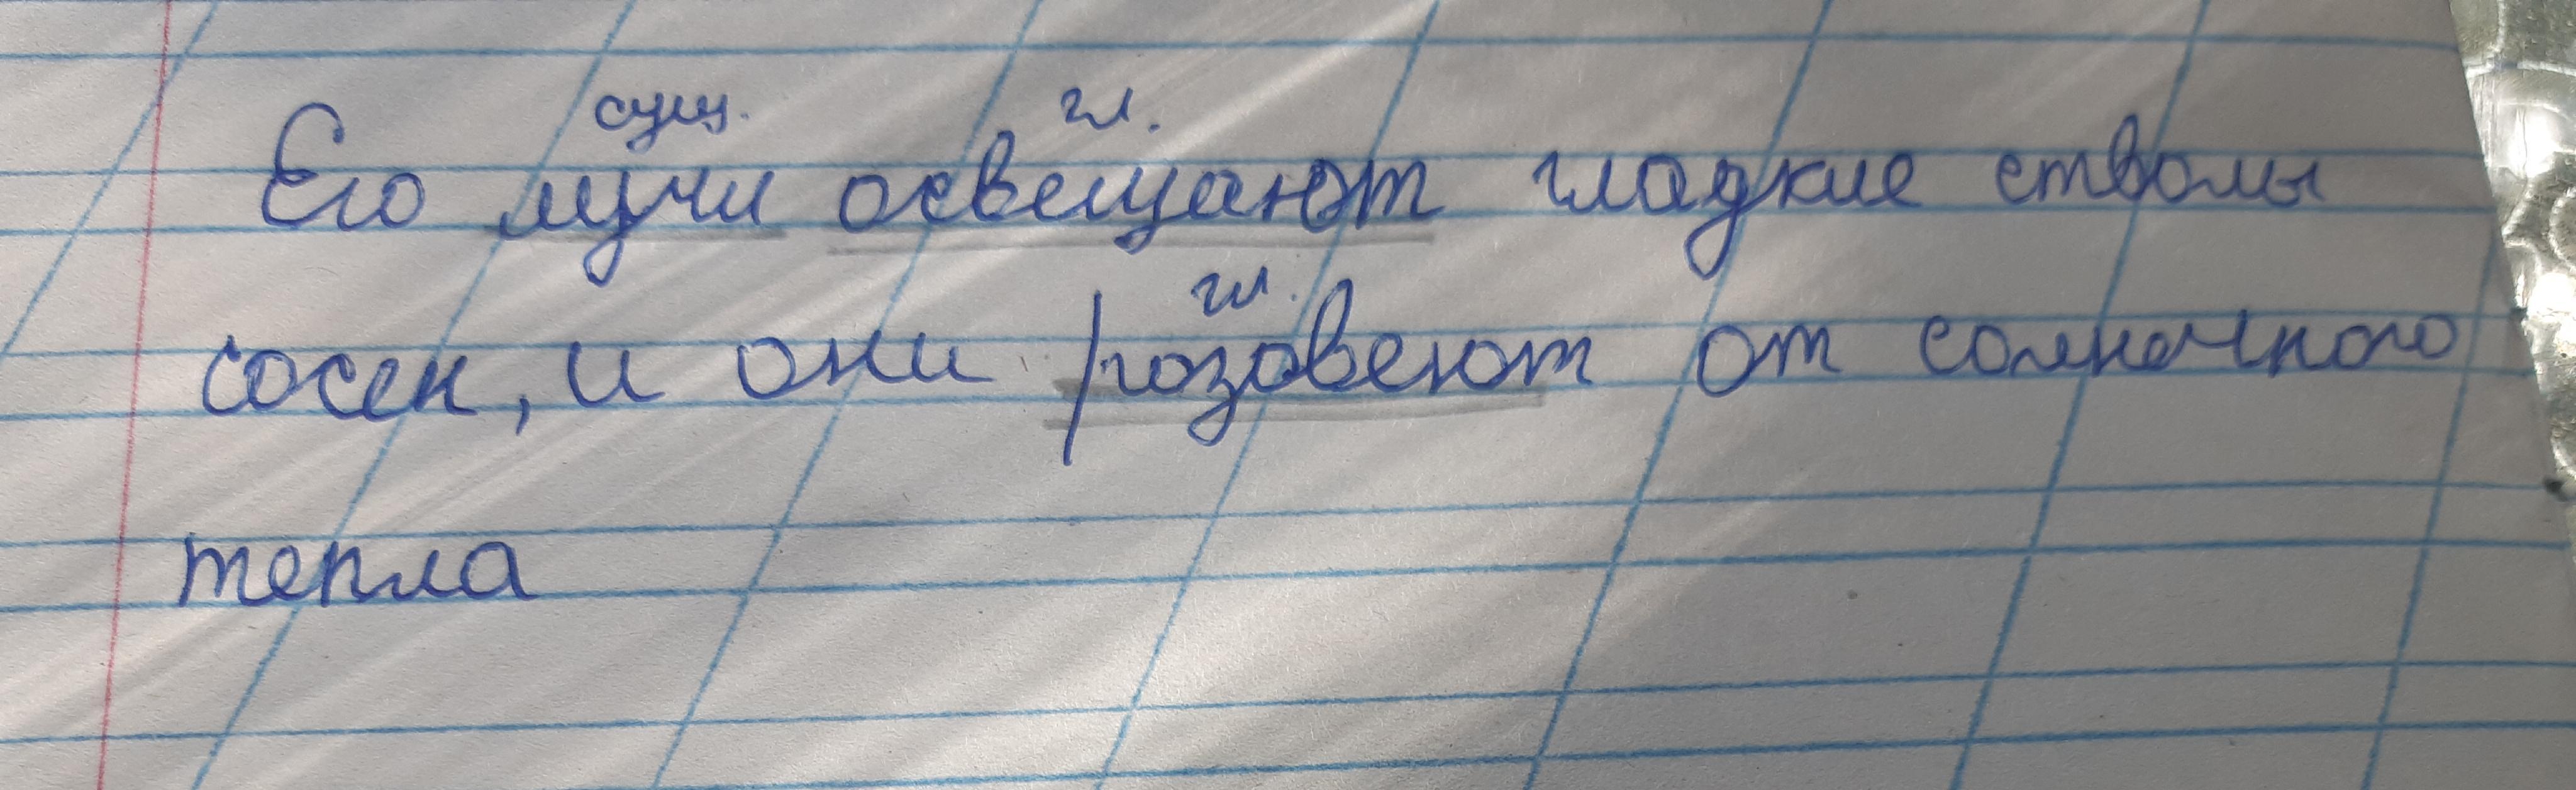 сущ. гл.
Его лучи освещают гладкие стволы
гл.
сосен, и они розовеют от солнечного
тепла